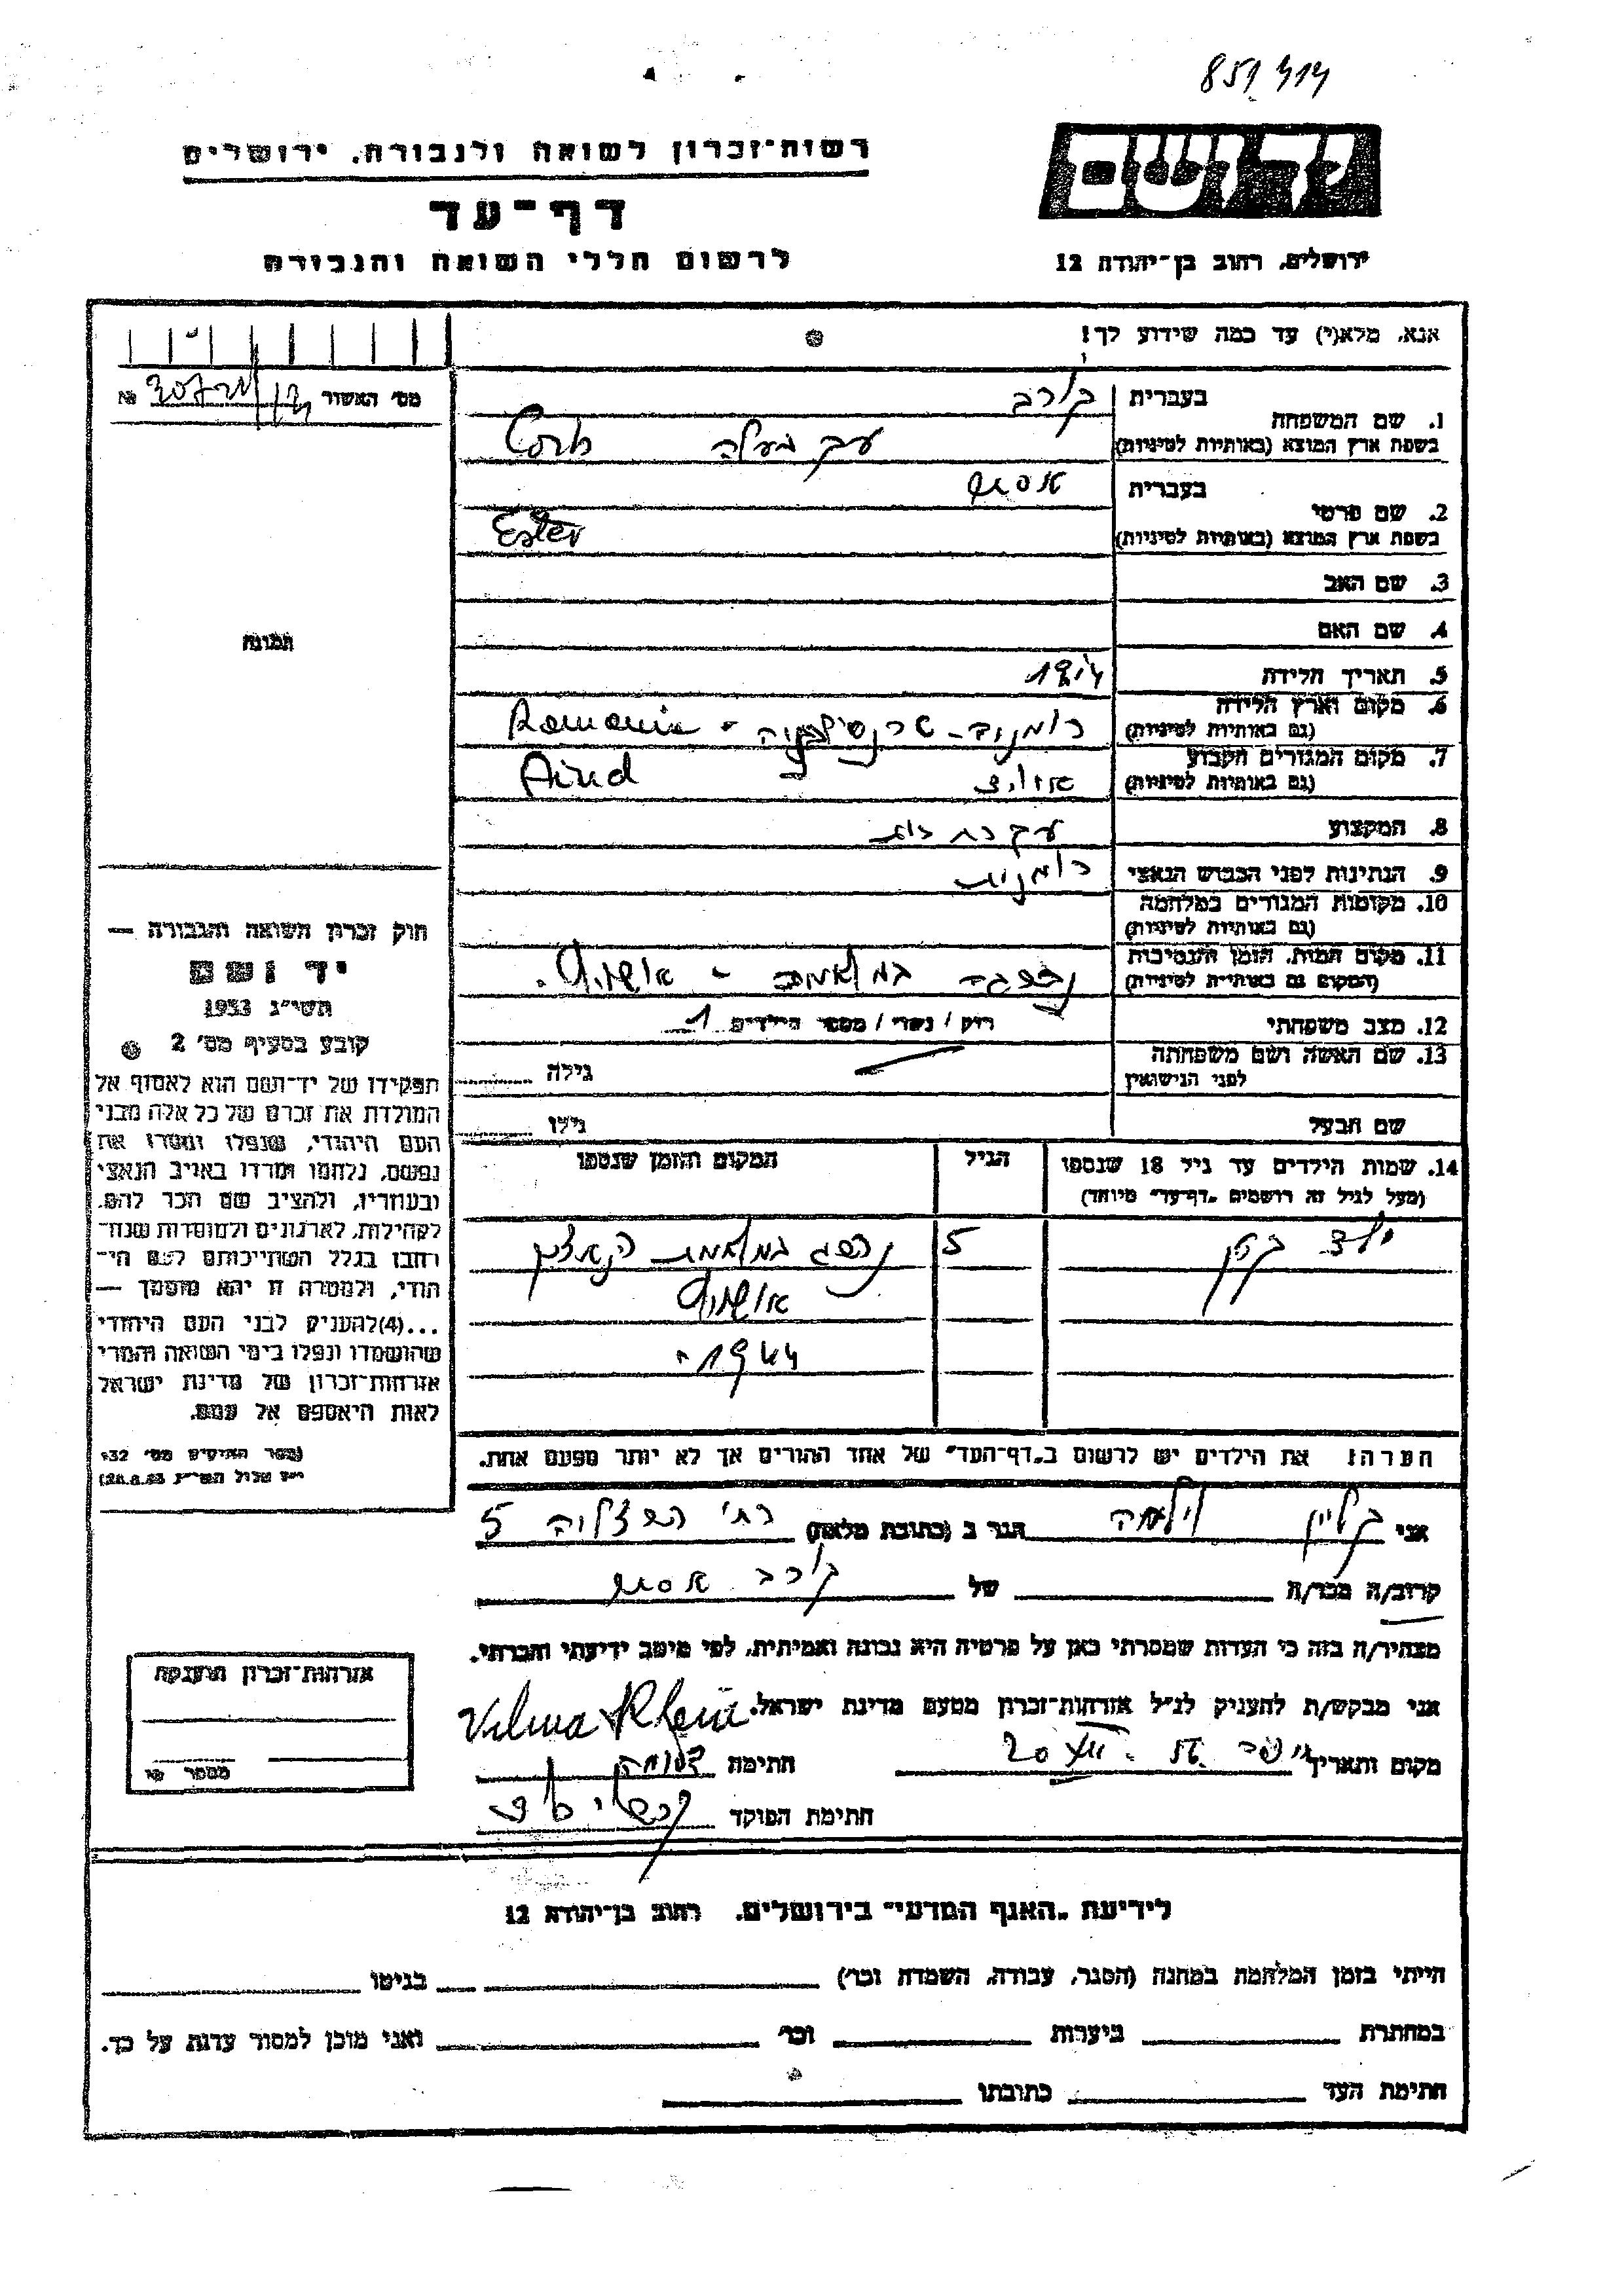 851 414
רשות־זכרון לשואה ולגבורה, ירושלים
דף־עד
לרשום חללי השואה והגבורה
יד ושם
ירושלים, רחוב בן־יהודה 12
אנא, מלא(י) עד כמה שידוע לך!
מס' האשור №
1. שם המשפחה
בעברית קורב
בשפת ארץ המוצא (באותיות לטיניות) עקב בעלה Corb
2. שם פרטי
בעברית אסתר
בשפת ארץ המוצא (באותיות לטיניות) Ester
3. שם האב
4. שם האם
תמונה
5. תאריך הלידה
6. מקום וארץ הלידה
(גם באותיות לטיניות) רומניה - טרנסילבניה - Romania
7. מקום המגורים הקבוע
(גם באותיות לטיניות) Aiud
8. המקצוע עקרת בית
9. הנתינות לפני הכבוש הנאצי רומנית
10. מקומות המגורים במלחמה
(גם באותיות לטיניות)
11. מקום המות, הזמן והנסיבות
(המקום גם באותיות לטיניות) נספגה - אושויץ.
12. מצב משפחתי רוק / נשוי / מספר הילדים 1
13. שם האשה ושם משפחתה
לפני הנישואין גילה
שם הבעל גילו
חוק זכרון השואה והגבורה —
יד ושם
תשי"ג 1953
קובע בסעיף מס' 2
תפקידו של יד־ושם הוא לאסוף אל
המולדת את זכרם של כל אלה מבני
העם היהודי, שנפלו ומסרו את
נפשם, נלחמו ומרדו באויב הנאצי
ובעוזריו, ולהציב שם וזכר להם,
לקהילות, לארגונים ולמוסדות שנח־
רבו בגלל השתייכותם לעם הי־
הודי, ולמטרה זו יהא מוסמך —
...(4)להעניק לבני העם היהודי
שהושמדו ונפלו בימי השואה והמרי
אזרחות־זכרון של מדינת ישראל
לאות היאספם אל עמם.
(ספר החוקים מס' 132
י"ז אלול תשי"ג 28.8.53)
14. שמות הילדים עד גיל 18 שנספו הגיל המקום והזמן שנספו
(מעל לגיל זה רושמים „דף־עד" מיוחד)
ילד קטן 5
אושויץ
1944.
הערה: את הילדים יש לרשום ב„דף־העד" של אחד ההורים אך לא יותר מפעם אחת.
אני קליין וילמה הגר ב (כתובת מלאה) רח' 5
קרוב/ה מכר/ה של קורב אסתר
מצהיר/ה בזה כי העדות שמסרתי כאן על פרטיה היא נכונה ואמיתית, לפי מיטב ידיעתי והכרתי.
אני מבקש/ת להעניק לנ"ל אזרחות־זכרון מטעם מדינת ישראל. Vilma Klein
מקום ותאריך 20 חתימת
חתימת הפוקד
אזרחות־זכרון הוענקה
מספר
לידיעת „האגף המדעי" בירושלים, רחוב בן־יהודה 12
הייתי בזמן המלחמה במחנה (הסגר, עבודה, השמדה וכו') בגיטו
במחתרת ביערות וכו' ואני מוכן למסור עדות על כך.
חתימת העד כתובתו